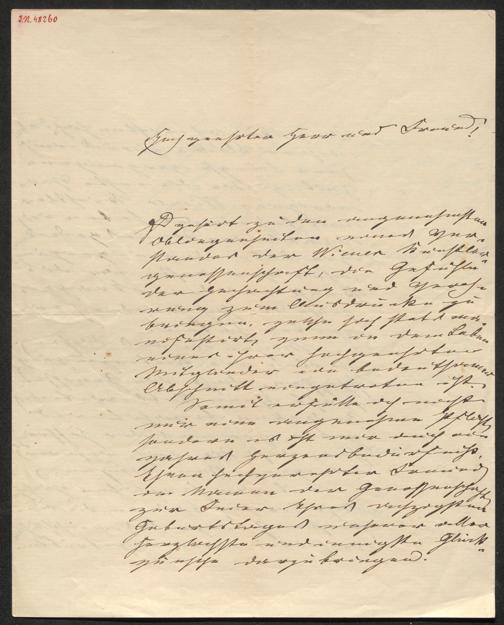 I.N. 48260
Hochgeehrter Herr und Freund!
Es gehört zu den angenehmsten
Obliegenheiten eines Vor-
standes der Wiener Künstler-
genossenschaft, die Gefühle
der Hochachtung und Vereh-
rung zum Ausdrucke zu
bringen, welche sich stets
wenn in dem Leben
eines ihrer hochgeehrten
Mitglieder ein bedeutsamer
Abschnitt eingetreten ist.
Somit erfülle ich nicht
nur eine angenehme Pflicht,
sondern es ist mir auch ein
wahres Herzensbedürfniß,
Ihnen hochgeehrter Freund
im Namen der Genossenschaft
zur Feier Ihres achtzigsten
Geburtstages unsere aller
herzlichste und innigste Glück-
wünsche darzubringen.